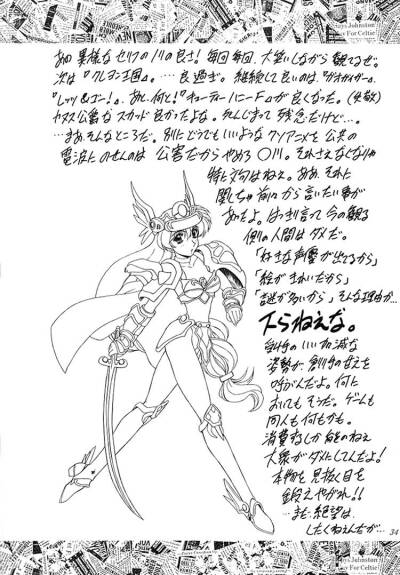 あの異様なセリフのノリの良さ！毎回毎回、大笑いしながら観てるぜ。
次は『クレヨン王国』。…良過ぎ。継続して良いのは『ガオガイガー』。
『レッツ＆ゴー！』。あと、何と！『キューティーハニーF』が良くなった。(失敬)
公爵な スカッド 良かったよな。死んじまって 残念だけど…。
…まあ、そんなところだ。別にどうでもいいようなクソアニメを公共の
電波にのせんのは 公害だからやめろ〇川。それさえなくなりゃ
特に文句はねェ。ああ、それに
関しちゃ前々から言いたい事が
あったよ。はっきり言って今の観る
側の人間はダメだ。
「好きな声優が出てるから」
「絵がきれいだから」
「謎が多いから」そんな理由か…
下らねえな。
創り手のいい加減な
姿勢が、創り手の甘えを
呼ぶんだよ。何に
おいてもそうだ。ゲームも
同人も何もかも。
消費するしか能のねェ
大衆がダメにしてんだよ！
本物を見抜く目を
鍛えやがれ！！
…まだ絶望は
したくねェんだが…
34
ys Johnston
For Celtic